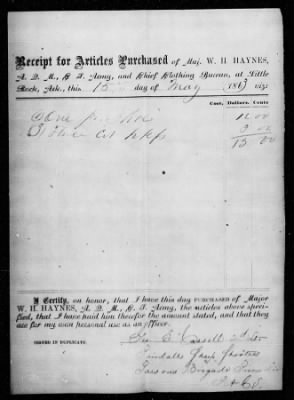 Receipt for Articles Purchased of Maj. W. H. HAYNES,
A. Q. M., C. S. Army, and Chief Clothing Bureau, at Little
Rock, Ark., this 15 day of May 1863 viz:
Cost, Dollars. Cents
One pr 12 00
3 00
15 00
I Certify, on honor, that I have this day PURCHASED of Major
W. H. HAYNES, A. Q. M., C. S. Army, the articles above speci-
fied, that I have paid him therefor the amount stated, and that they
are for my own personal use as an officer.
SIGNED IN DUPLICATE.
Geo. E. 2d Lt
Sharp Shooters
Parsons Brigade